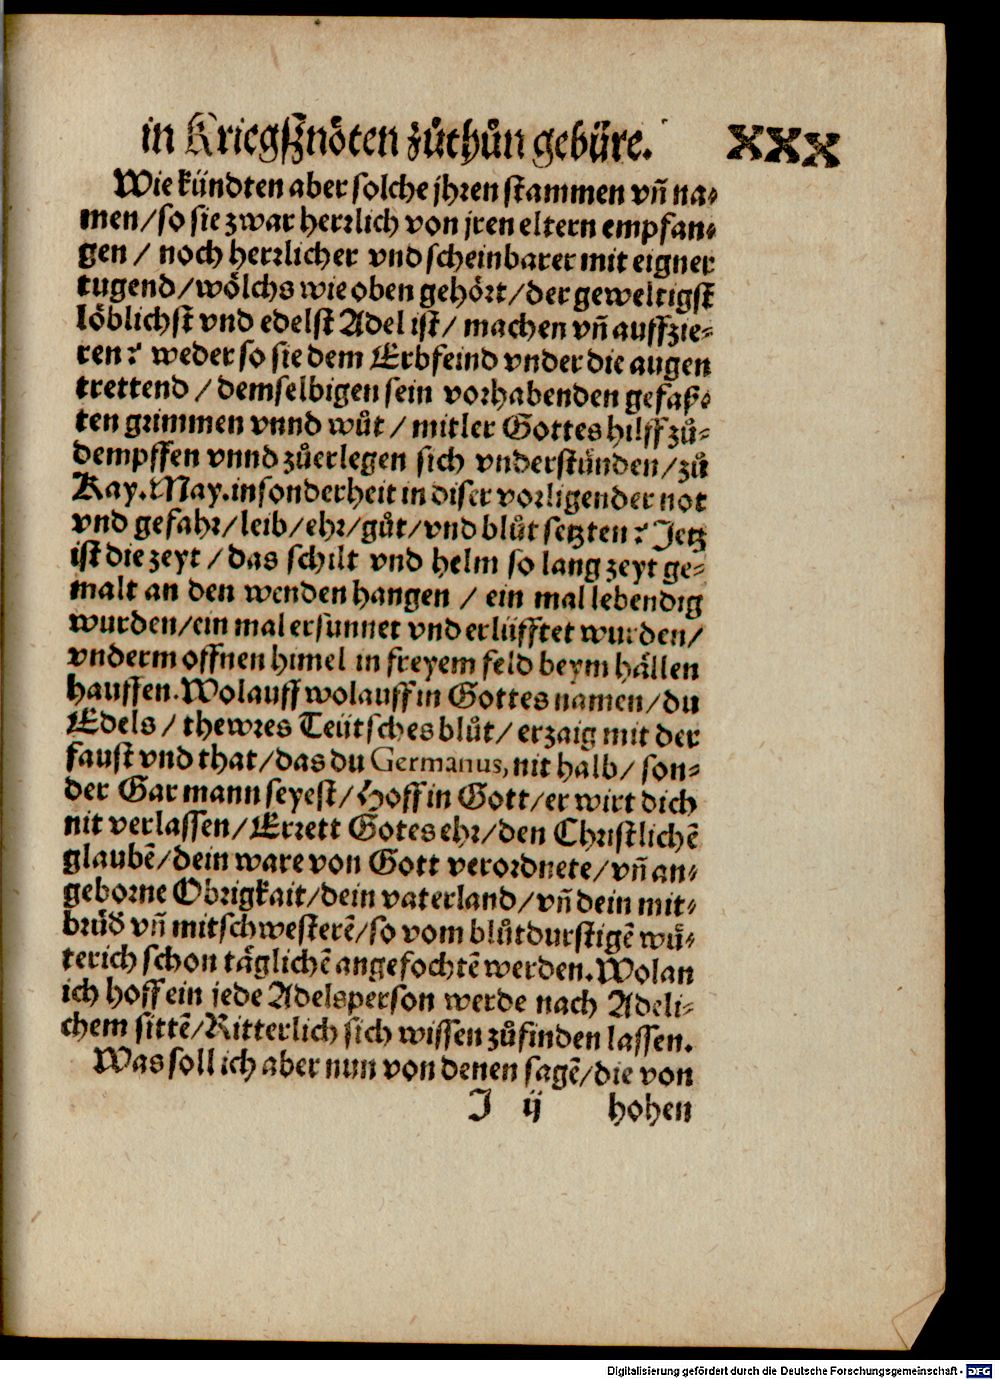 in Kriegßnöten zůthůn gebüre. XXX
Wie kündten aber solche jhren stammen vñ na-
men/so sie zwar herrlich von jren eltern empfan-
gen / noch herrlicher vnd scheinbarer mit eigner
tugend/wölchs wie oben gehört/der geweltigst
löblichst vnd edelst Adel ist/ machen vñ auffzie-
ren? weder so sie dem Erbfeind vnder die augen
trettend / demselbigen sein vorhabenden gefaß-
ten grimmen vnnd wůt / mitler Gottes hilff zů-
dempffen vnnd zůerlegen sich vnderstünden/zů
Kay. May. insonderheit in diser vorligender not
vnd gefahr/leib/ehr/gůt/vnd blůt setzten? Jetz
ist die zeyt / das schilt vnd helm so lang zeyt ge-
malt an den wenden hangen / ein mal lebendig
wurden/ein mal ersunnet vnd erlüfftet wurden/
vnderm offnen himel in freyem feld beym hällen
hauffen. Wolauff wolauff in Gottes namen/du
Edels / thewres Teütsches blůt/ erzaig mit der
faust vnd that/das du Germanus, nit halb/ son-
der Gar mann seyest/Hoff in Gott/er wirt dich
nit verlassen/Errett Gotes ehr/den Christlichẽ
glaubẽ/dein ware von Gott verordnete/vñ an-
geborne Obrigkait/dein vaterland/vñ dein mit-
brüd' vñ mitschwesterẽ/so vom blůtdurstigẽ wü-
terich schon täglichẽ angefochtẽ werden. Wolan
ich hoff ein jede Adelsperson werde nach Adeli-
chem sittẽ/Ritterlich sich wissen zůfinden lassen.
Was soll ich aber nun von denen sagẽ/die von
J ij hohen
Digitalisierung gefördert durch die Deutsche Forschungsgemeinschaft - DFG